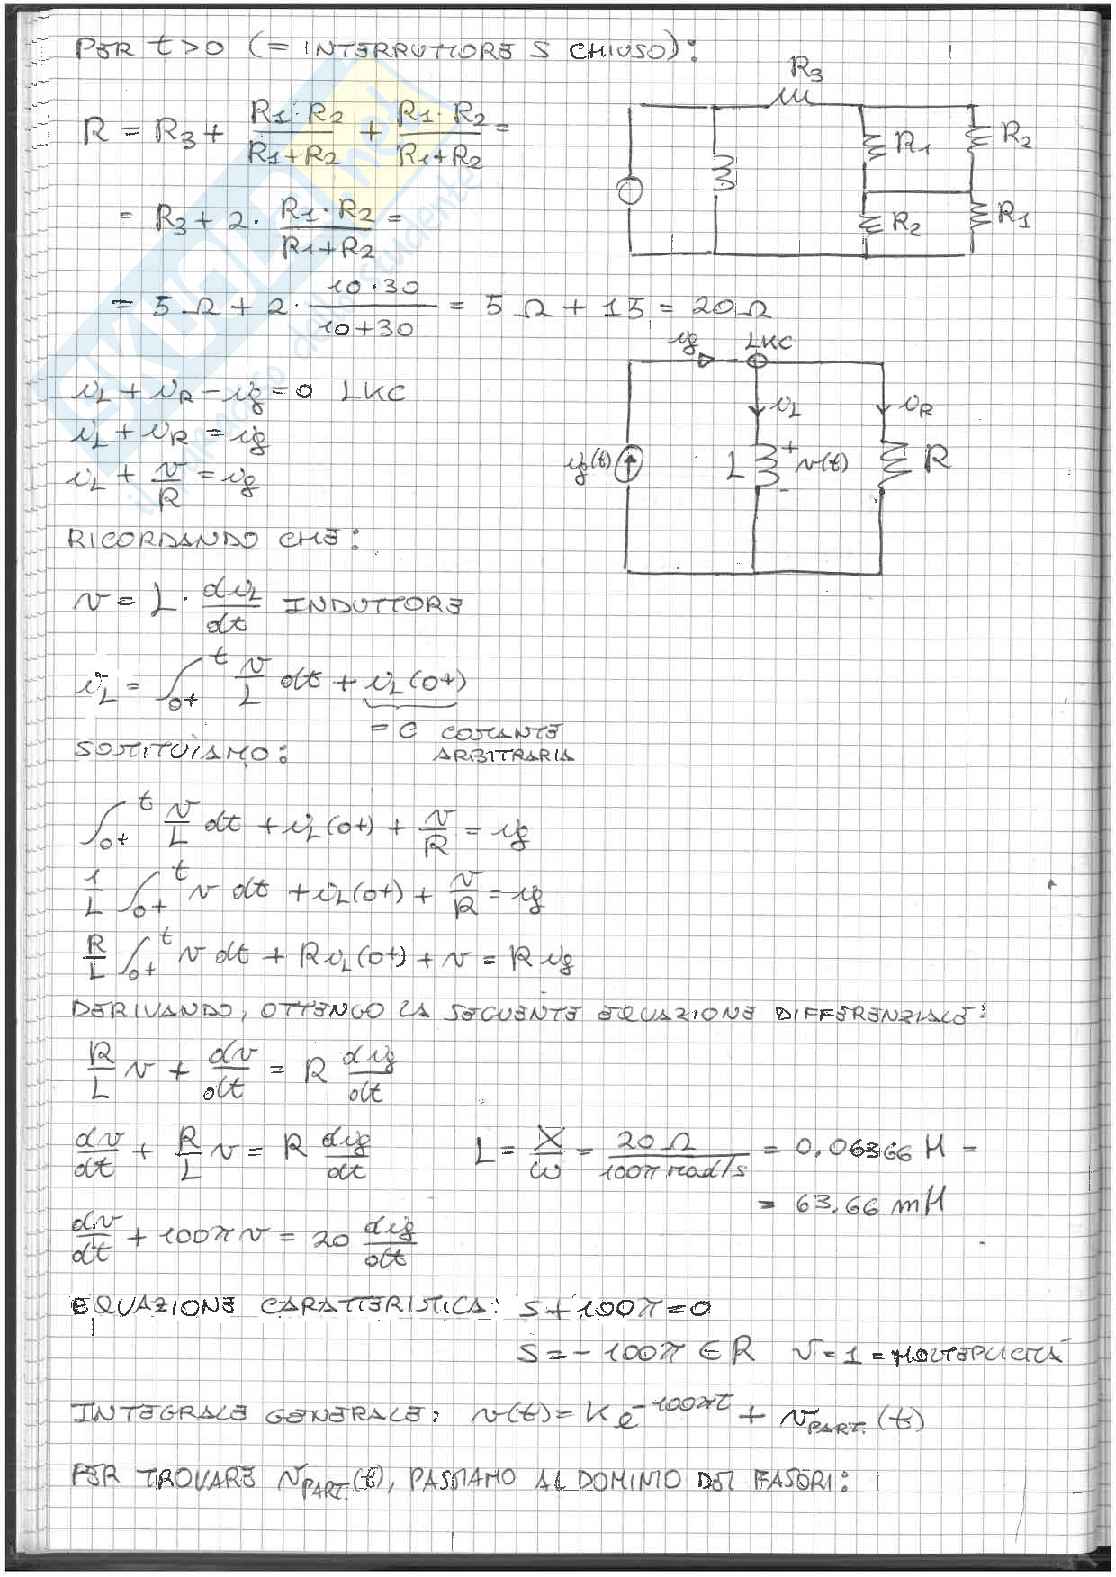 PER t>0 (= INTERRUTTORE S CHIUSO):
R3
R = R3 + R1·R2/(R1+R2) + R1·R2/(R1+R2) =
R1 R2
= R3 + 2· R1·R2/(R1+R2) =
R2 R1
= 5 Ω + 2· 10·30/(10+30) = 5 Ω + 15 = 20 Ω
ig LKC
iL + iR - ig = 0 LKC
iL iR
iL + iR = ig
ig(t) L + v(t) - R
iL + v/R = ig
RICORDANDO CHE:
v = L · diL/dt INDUTTORE
iL = ∫0+^t v/L dt + iL(0+)
= C COSTANTE
ARBITRARIA
SOSTITUIAMO:
∫0+^t v/L dt + iL(0+) + v/R = ig
1/L ∫0+^t v dt + iL(0+) + v/R = ig
R/L ∫0+^t v dt + R iL(0+) + v = R ig
DERIVANDO, OTTENGO LA SEGUENTE EQUAZIONE DIFFERENZIALE:
R/L v + dv/dt = R dig/dt
dv/dt + R/L v = R dig/dt L = X/ω = 20 Ω/100π rad/s = 0,06366 H =
= 63,66 mH
dv/dt + 100π v = 20 dig/dt
EQUAZIONE CARATTERISTICA: S + 100π = 0
S = - 100π ∈ R ν = 1 = MOLTEPLICITÀ
INTEGRALE GENERALE: v(t) = K e^-100πt + vPART.(t)
PER TROVARE vPART.(t), PASSIAMO AL DOMINIO DEI FASORI: